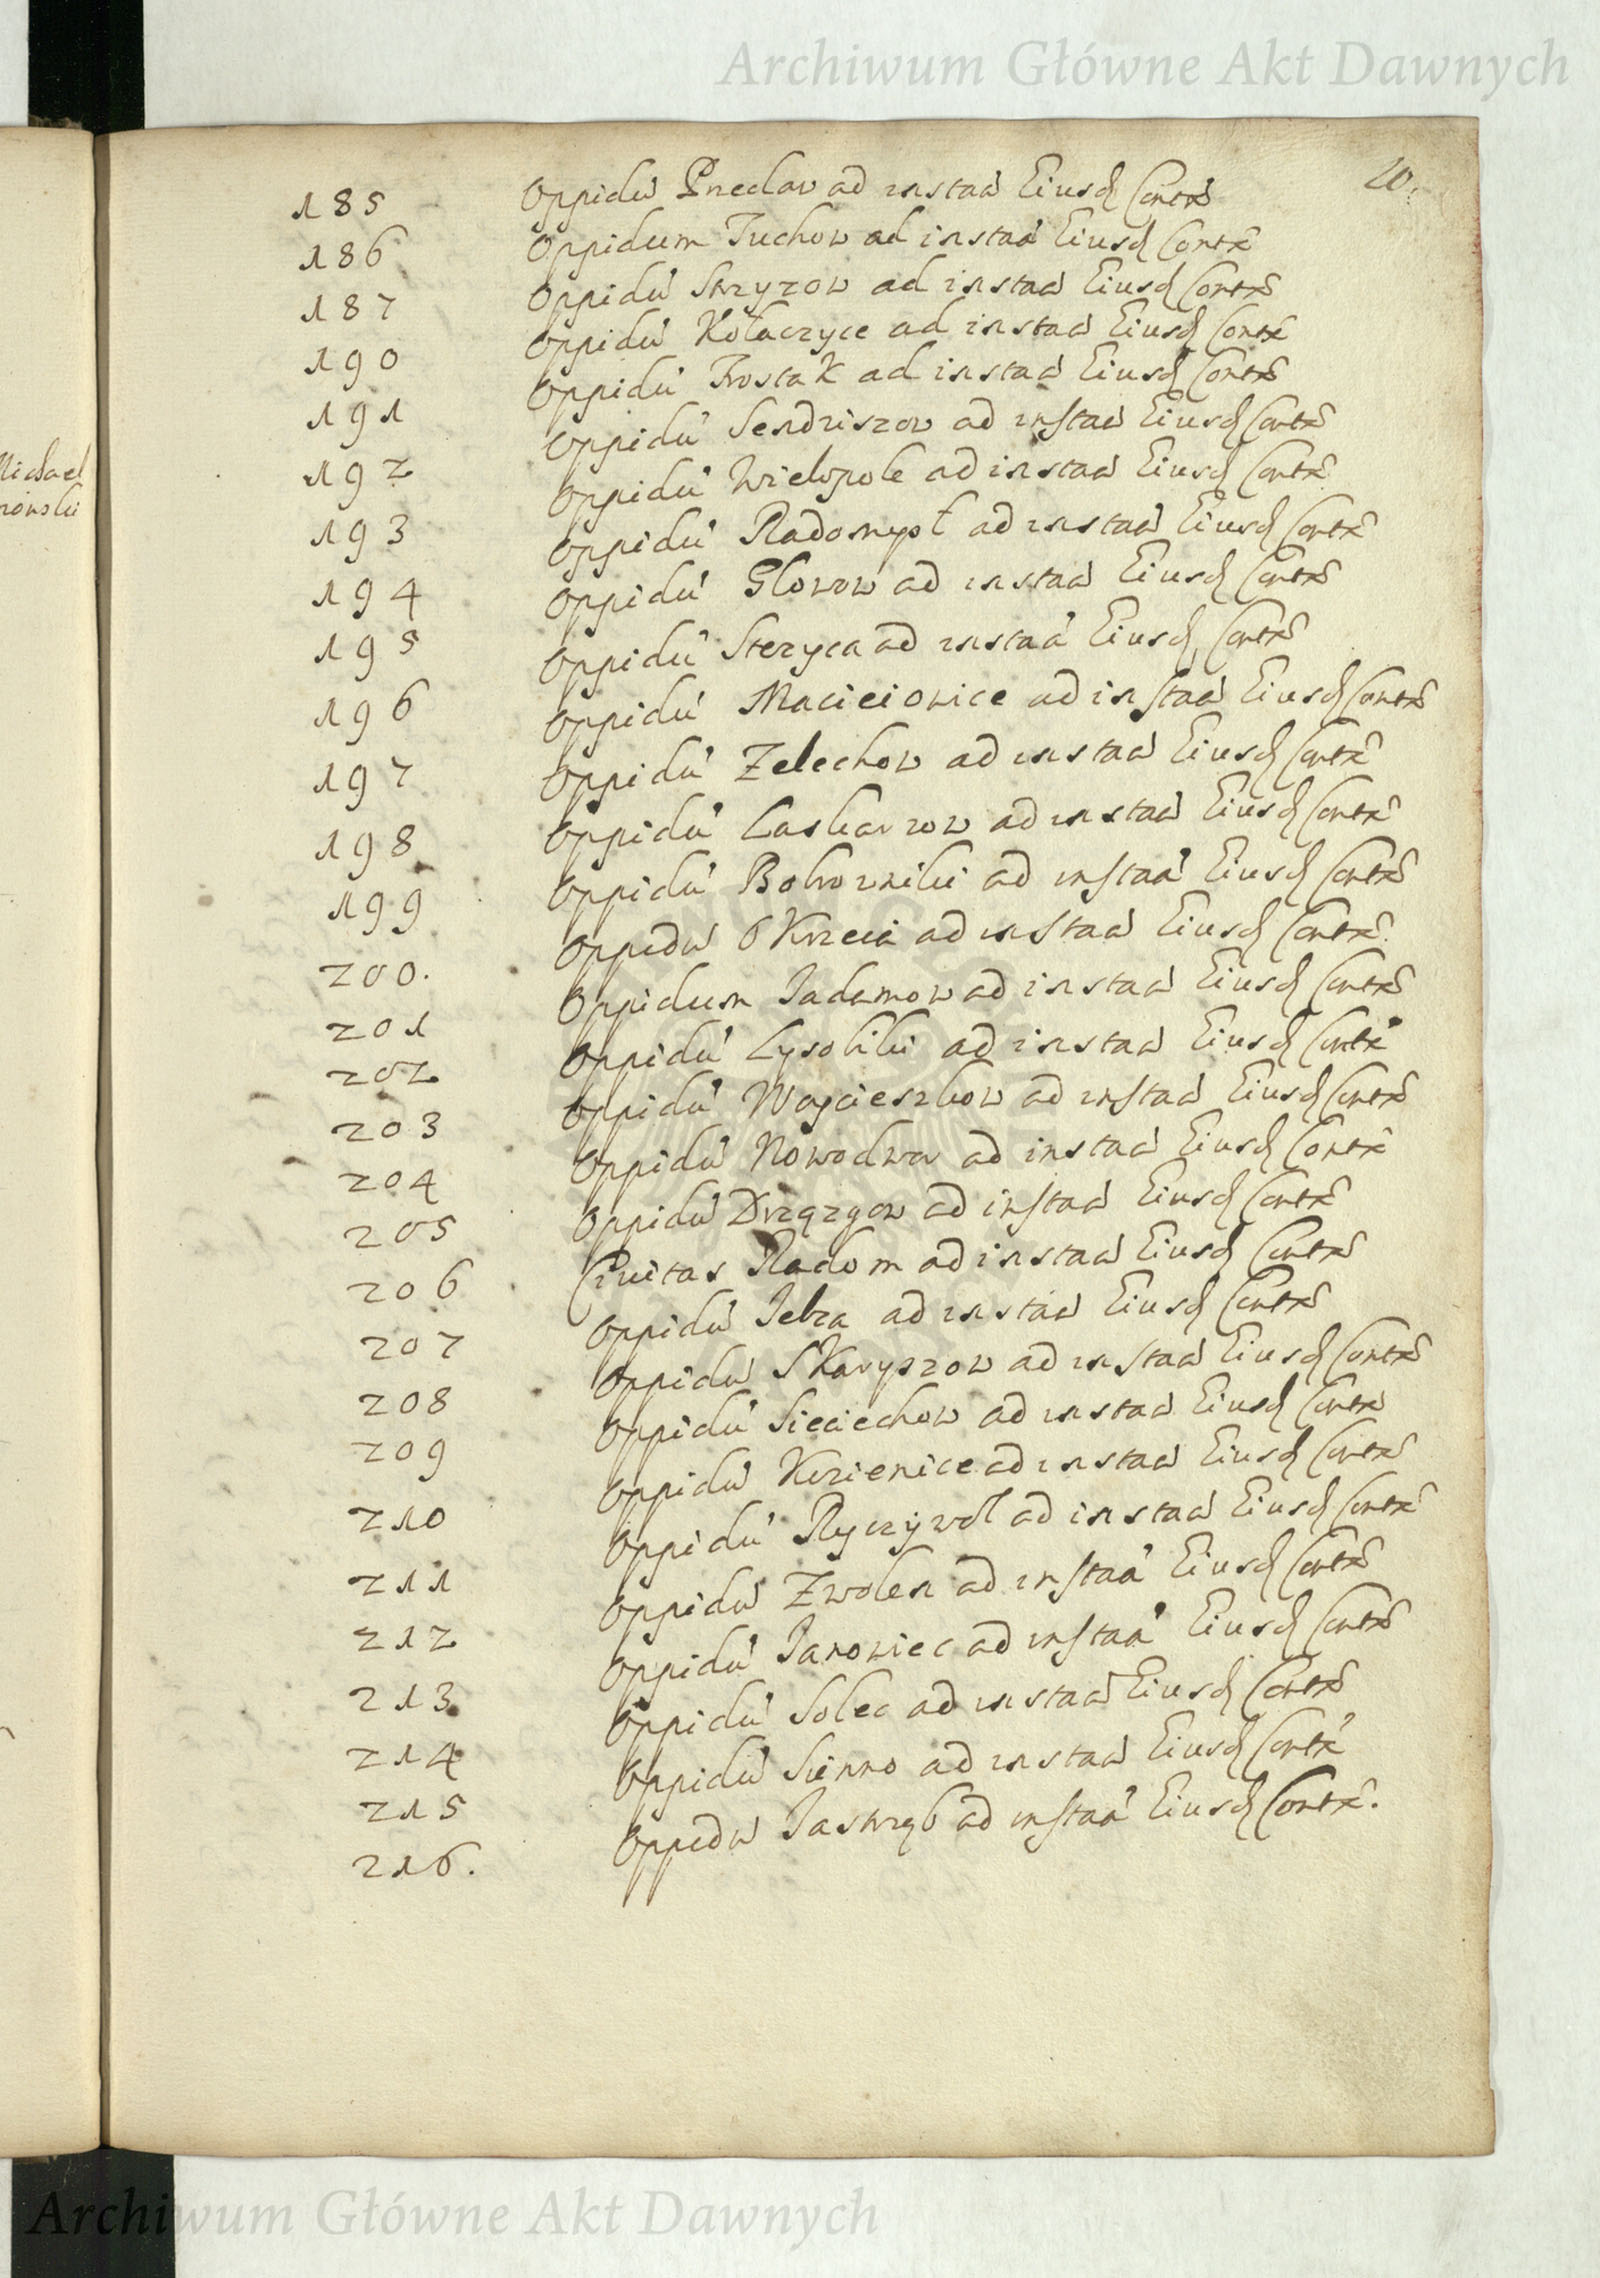 Archiwum Główne Akt Dawnych
20.
185 Oppidũ Przeclav ad instaã Eiusd Contrã
186 Oppidum Tuchow ad instaã Eiusd Contrã
187 Oppidũ Strzyzow ad instaã Eiusd Contrã
190 Oppidũ Kolaczyce ad instaã Eiusd Contrã
191 Oppidũ Frostak ad instaã Eiusd Contrã
192 Oppidũ Sendziszow ad instaã Eiusd Contrã
193 Oppidũ Wielopole ad instaã Eiusd Contrã
194 Oppidũ Radomysl ad instaã Eiusd Contrã
195 Oppidũ Glowow ad instaã Eiusd Contrã
196 Oppidũ Stezyca ad instaã Eiusd Contrã
197 Oppidũ Macieiowice ad instaã Eiusd Contrã
198 Oppidũ Zelechow ad instaã Eiusd Contrã
199 Oppidũ Laskarzow ad instaã Eiusd Contrã
200. Oppidũ Bobrowniki ad instaã Eiusd Contrã
201 Oppidũ Okrzeia ad instaã Eiusd Contrã
202 Oppidum Jadamow ad instaã Eiusd Contrã
203 Oppidũ Lysobiki ad instaã Eiusd Contrã
204 Oppidũ Woycieszkow ad instaã Eiusd Contrã
205 Oppidũ Nowodwor ad instaã Eiusd Contrã
206 Oppidũ Drzązgow ad instaã Eiusd Contrã
207 Civitas Radom ad instaã Eiusd Contrã
208 Oppidũ Jelza ad instaã Eiusd Contrã
209 Oppidũ Skaryszow ad instaã Eiusd Contrã
210 Oppidũ Sieciechow ad instaã Eiusd Contrã
211 Oppidũ Kozienice ad instaã Eiusd Contrã
212 Oppidũ Ryczywol ad instaã Eiusd Contrã
213 Oppidũ Zwolen ad instaã Eiusd Contrã
214 Oppidũ Janowiec ad instaã Eiusd Contrã
215 Oppidũ Solec ad instaã Eiusd Contrã
216. Oppidũ Sienno ad instaã Eiusd Contrã
Oppidũ Jastrząb ad instaã Eiusd Contrã.
Michael
Archiwum Główne Akt Dawnych